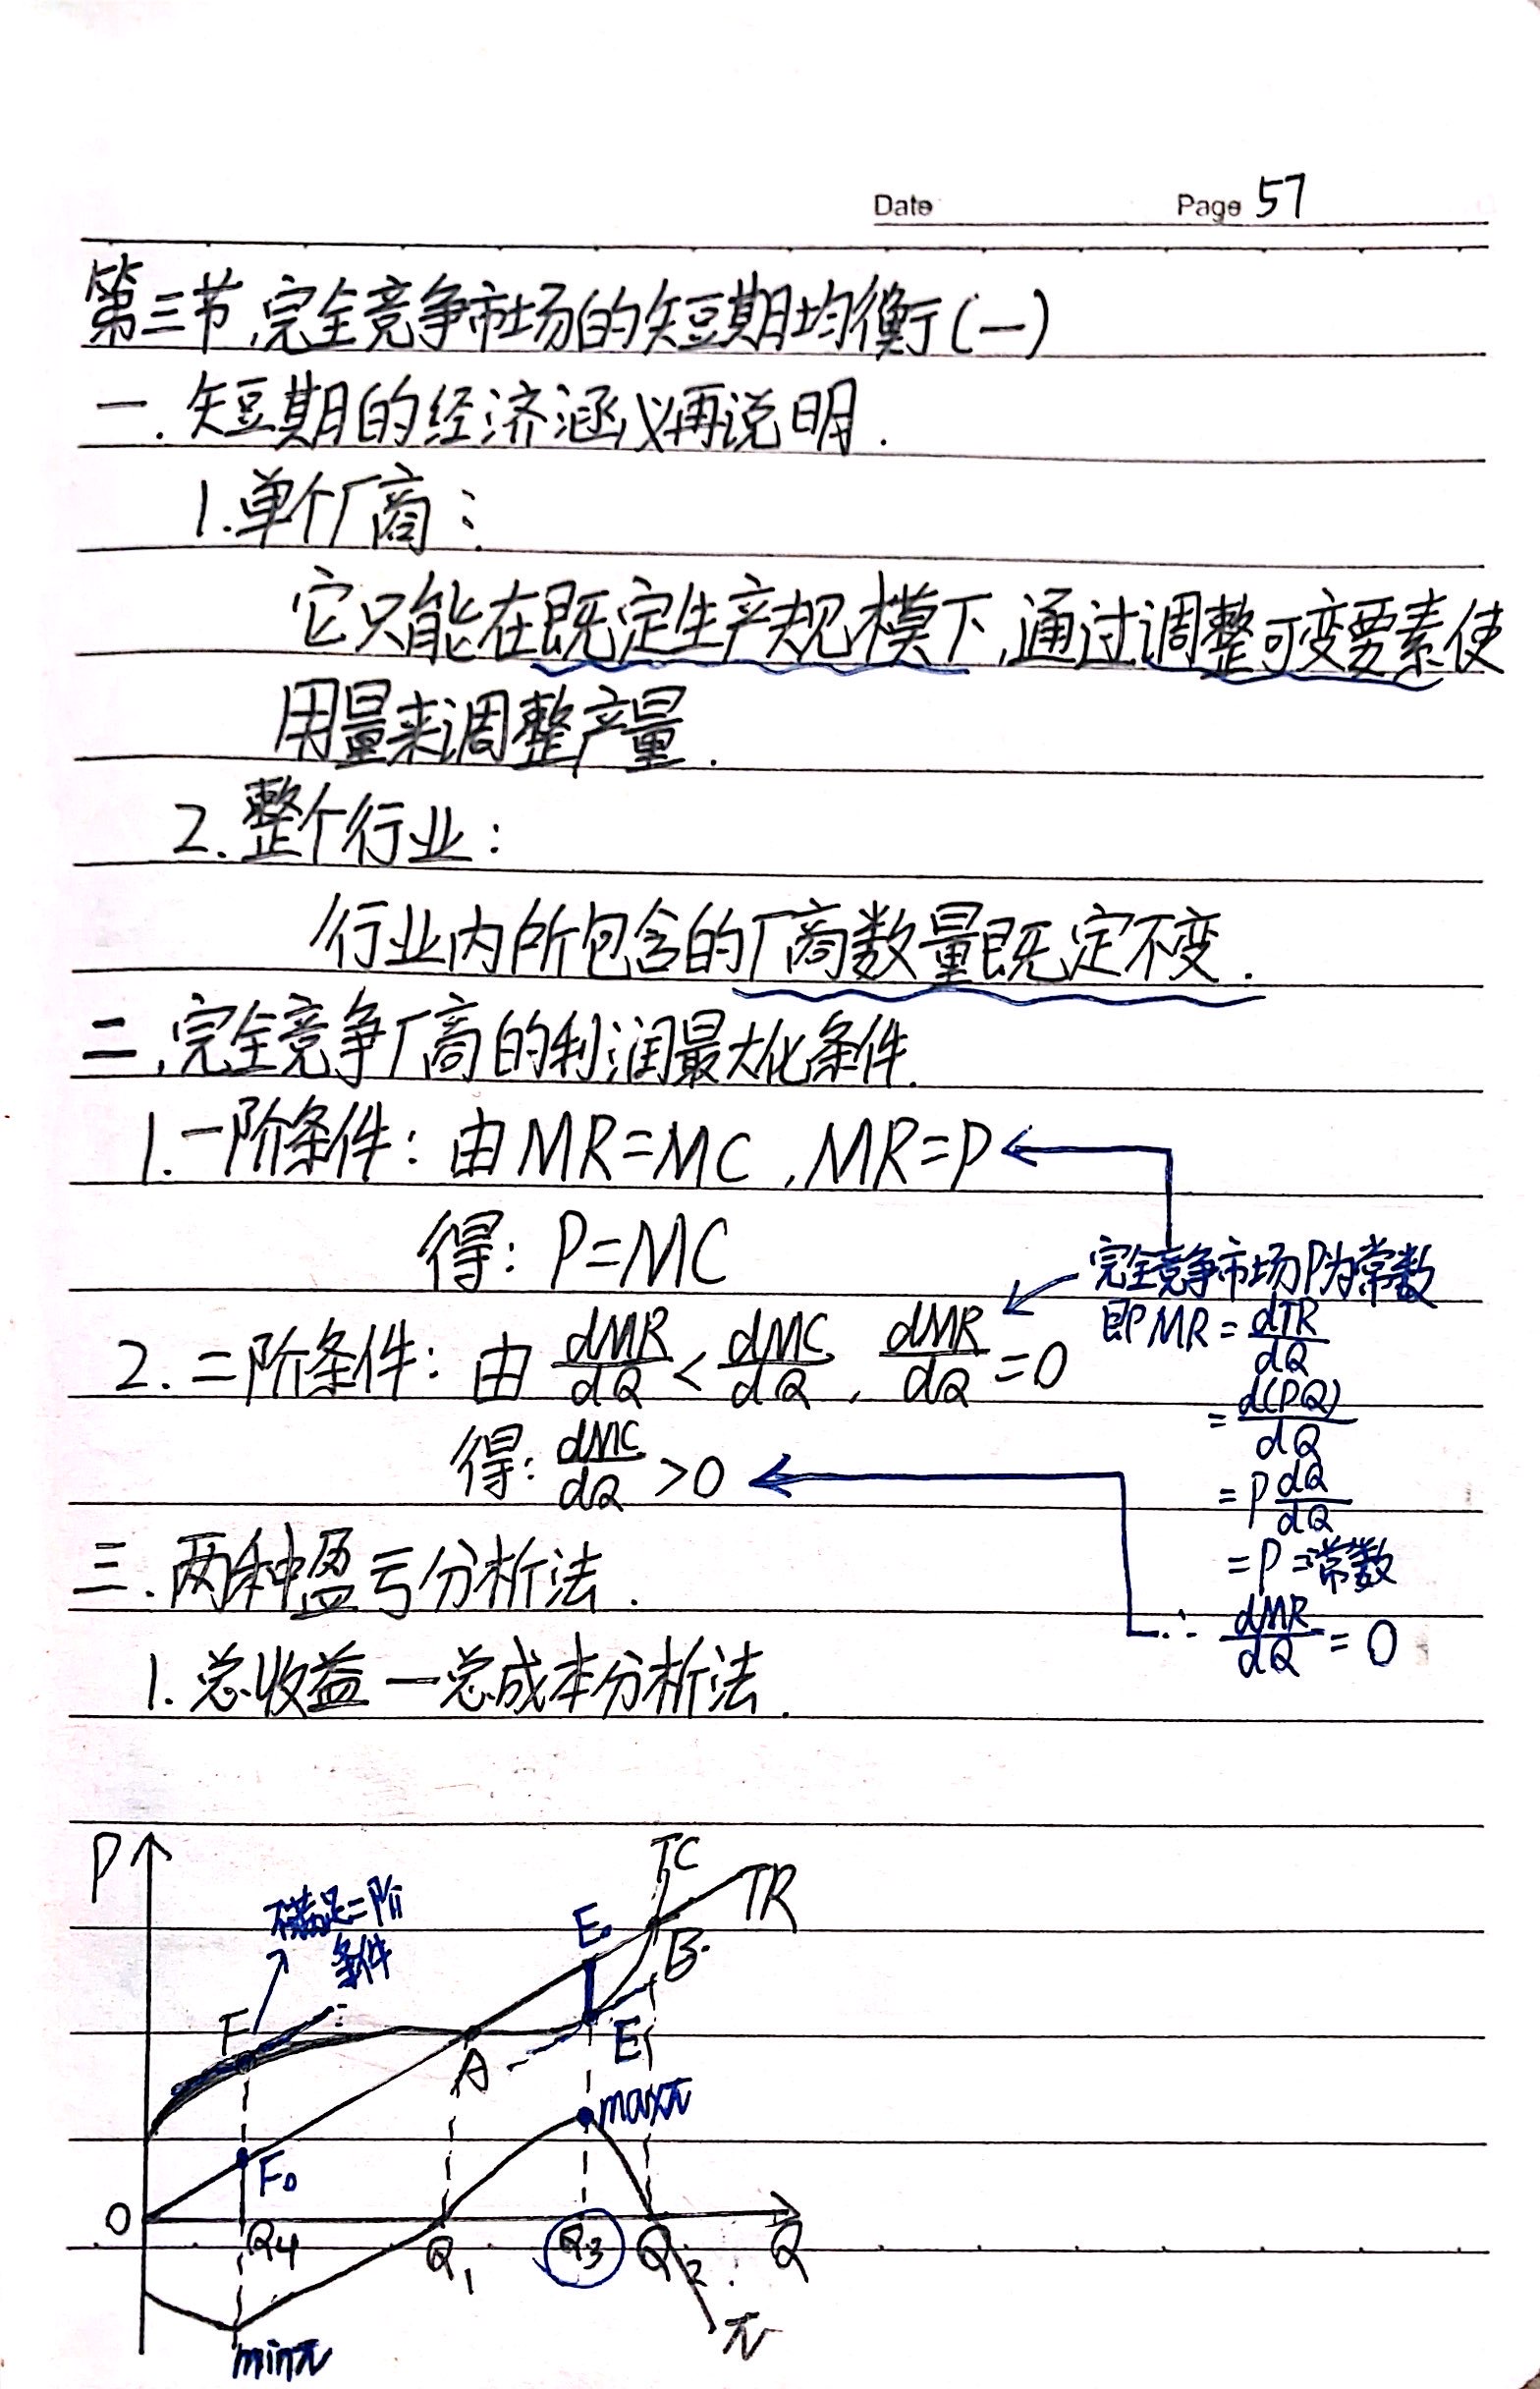 Date Page 57
第三节.完全竞争市场的短期均衡(一)
一.短期的经济涵义再说明.
1.单个厂商:
它只能在既定生产规模下,通过调整可变要素使
用量来调整产量.
2.整个行业:
行业内所包含的厂商数量既定不变.
二.完全竞争厂商的利润最大化条件.
1.一阶条件:由MR=MC,MR=P
得:P=MC
完全竞争市场P为常数
即MR=dTR/dQ
=d(PQ)/dQ
=P dQ/dQ
=P=常数
∴ dMR/dQ=0
2.二阶条件:由 dMR/dQ<dMC/dQ, dMR/dQ=0
得:dMC/dQ>0
三.两种盈亏分析法.
1.总收益—总成本分析法.
P TC TR
不满足二阶
条件
E₀ B
F A E
maxπ
F₀
O Q4 Q1 Q3 Q2 Q
π
minπ